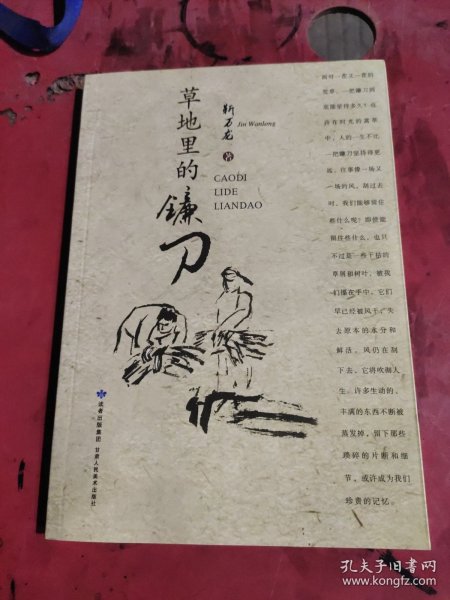 草地里的镰刀
靳万龙
Jin Wanlong
著
CAODI
LIDE
LIANDAO
面对一茬又一茬的
荒草,一把镰刀到
底能坚持多久?在
岁月时光的荒草
中,人的一生不比
一把镰刀坚持得更
远,往事像一场又
一场的风,刮过去
时,我们能够留住
些什么呢?即使能
留住些什么,也只
不过是一些干枯的
草屑和树叶,被我
们攥在手中,它们
早已经被风干,失
去原本的水分和
鲜活。风仍在刮
下去,它将吹彻人
生。许多生动的、
丰满的东西不断被
蒸发掉,留下那些
琐碎的片断和细
节,或许成为我们
珍贵的记忆。
读者出版集团
甘肃人民美术出版社
孔夫子旧书网
www.kongfz.com